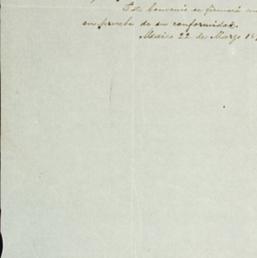 Este Convenio se firmará
en prueba de su conformidad.
Mexico 22 de Marzo